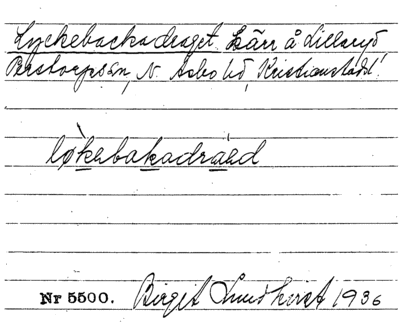 Lyckebackadraget. Kärr å Lillaryd
Perstorps sn, N. Åsbo hd, Kristianstads l.
lø̀kebakadráed
Nr 5500. Birgit Lundkvist 1936